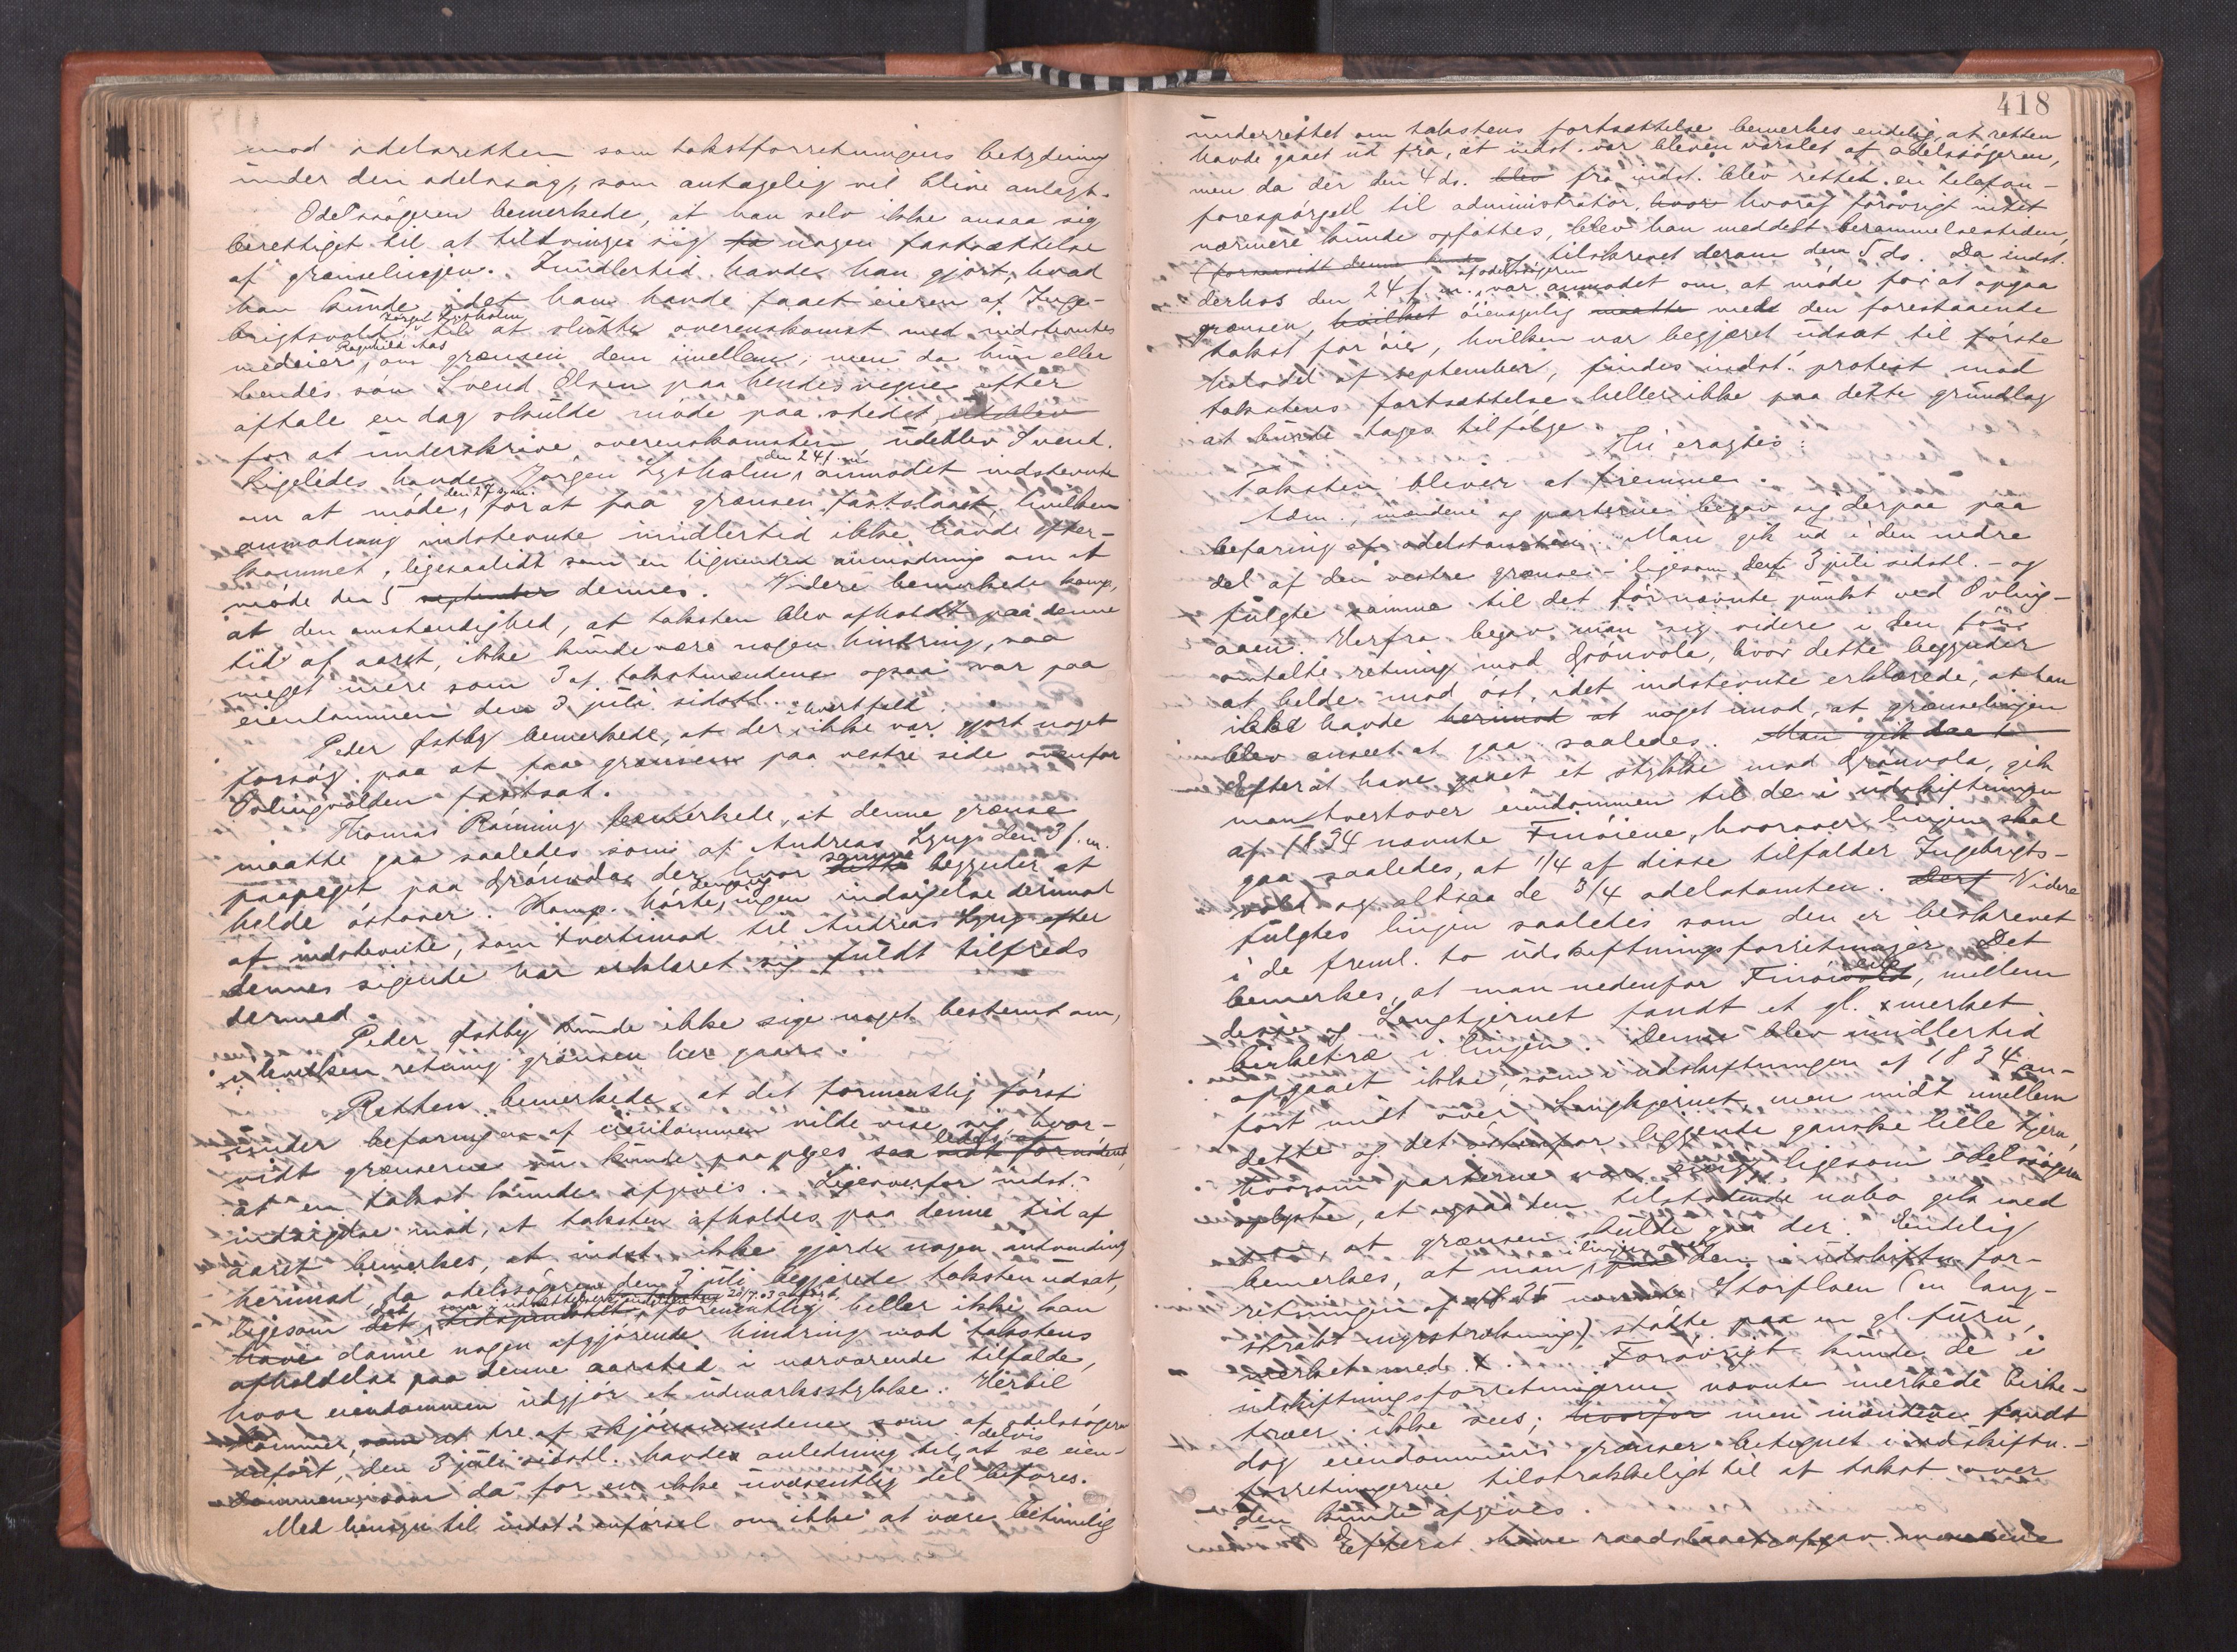 mod odelsretten som takstforretningens betydning
under den odelssag, som antagelig vil blive anlagt.
Odelssøgeren bemerkede, at han selv ikke ansaa sig
berettiget til at tiltvinge sig fa nogen fastsættelse
af grænselinjen. Imidlertid havde han gjort, hvad
han kunde, idet han havde faaet eieren af Inge-
brigtsvold, Jørgen Lysholm, til at slutte overenskomst med indstevntes
medeier, Ragnhild Aas, om grænsen dem imellem, men da hun eller
hendes søn Svend Olsen paa hendes vegne efter
aftale en dag skulde møde paa stedet udeblev
for at underskrive overenskomsten udeblev Svend.
Ligeledes havde Jørgen Lysholm den 24 f.m. anmodet indstevnte
om at møde, den 27 s.m. for at faa grænsen fastslaaet, hvilken
anmodning indstevnte imidlertid ikke havde efter-
kommet, ligesaalidt som en lignende anmodning om at
møde den 5 september dennes. Videre bemerkede komp.,
at den omstændighed, at taksten blev afholdt paa denne
tid af aaret, ikke kunde være nogen hindring, saa
meget mere som 3 af takstmændene ogsaa var paa
eiendommen den 3 juli sidstl.
Peder Østby bemerkede, at der i hvert fald ikke var gjort noget
forsøg paa at faa grænsen paa vestre side ovenfor
Ovlingvolden fastsat.
Thomas Rønning bemerkede, at denne grænse
maatte gaa saaledes som af Andreas Lyng den 3 f.m.
paapeget paa Grønvola der hvor dette samme begynder at
helde østover. Komp. hørte dengang ingen indsigelse derimod
af indstevnte, som tvertimod til Andreas Lyng efter
dennes sigende har erklæret sig fuldt tilfreds
dermed.
Peder Østby kunde ikke sige noget bestemt om,
i hvilken retning grænsen her gaar.
Retten bemerkede, at det formentlig først
under befaringen af eiendommen vilde vise sig, hvor-
vidt grænserne nu kunde paapeges saa vidt fornødent,
at en takst kunde afgives. Ligeoverfor indst.
indsigelse mod, at taksten afholdes paa denne tid af
aaret bemerkes, at indst. ikke gjorde nogen indvending
herimod, da odelssøgeren den 3 juli begjærede taksten udsat
ligesom det formentlig heller ikke kan
have danne nogen afgjørende hindring mod takstens
afholdelse paa denne aarstid i nærværende tilfælde,
hvor eiendommen udgjør et udmarksstykke. Hertil
kommer, som at tre af skjønsmændene som af odelssøgeren
anført, den 3 juli sidstl. havde anledning til delvis at se eien-
dommen, som da for en ikke uvæsentlig del befores.
Med hensyn til indst.' anførsel om ikke at være betimelig
418
underrettet om takstens fortsættelse bemerkes endelig, at retten
havde gaaet ud fra, at indst. var bleven varslet af odelssøgeren,
men da der den 4 ds. blev fra indst. blev rettet en telefon-
forespørgsel til administrator, hvor hvoraf forøvrigt intet
nærmere kunde opfattes, blev han meddelt berammelsestiden,
(forsaavidt denne kunde og tilskrevet derom den 5 ds. Da indst.
derhos den 24 f.m. af odelssøgeren var anmodet om at møde for at opgaa
grænsen, hvilket øiensynlig maatte med den forestaaende
takst for øie, hvilken var begjæret udsat til første
halvdel af september, findes indst.' protest mod
takstens fortsættelse heller ikke paa dette grundlag
at kunde tages tilfølge.
Thi eragtes:
Taksten bliver at fremme.
Adm., mændene og parterne begav sig derpaa paa
befaring af odelstomten. Man gik ud i den nedre
del af den vestre grænse – ligesom den 3 juli sidstl. – og
fulgte samme til det førnævnte punkt ved Ovling-
aaen. Herfra begav man sig videre i den før
omtalte retning mod Grønvola, hvor dette begynder
at helde mod øst, idet indstevnte erklærede, at han
ikke havde herimod at noget imod, at grænselinjen
blev anseet at gaa saaledes. Man gik daa
Efter at have gaaet et stykke mod Grønvola, gik
man tvertover eiendommen til de i udskiftningen
af 1834 nævnte Finøiene, hvorover linjen skal
gaa saaledes, at 1/4 af disse tilfalder Ingebrigts-
vold og altsaa de 3/4 odelstomten. Derf Videre
fulgtes linjen saaledes som den er beskrevet
i de freml. to udskiftningsforretninger. Det
bemerkes, at man nedenfor Finøiene, mellem
disse og Langtjernet fandt et gl. x merket
birketræ i linjen. Denne blev imidlertid
opgaaet ikke, som i udskiftningen af 1834 an-
ført midt over Langtjernet, men midt imellem
dette og det østenfor liggende ganske lille tjern,
hvorom parterne var enige, ligesom odelssøgeren
oplyste, at ogsaa den tilstødende nabo gik med
paa, at grænsen skulde gaa der. Endelig
bemerkes, at man i linjen over den i udskiftn. for-
retningen af 1835 nævnte Storfloen (en lang-
strakt myrstrækning) støtte paa en gl. furu,
merket med x. Forøvrigt kunde de i
udskiftningsforretningerne nævnte merkede birke-
træer ikke sees; hvorfor men mændene fandt
dog eiendommens grænser betegnet i udskiftn.-
forretningerne tilstrækkeligt til at takst over
den kunde afgives.
Efter at have raadslaaet afgav mændene